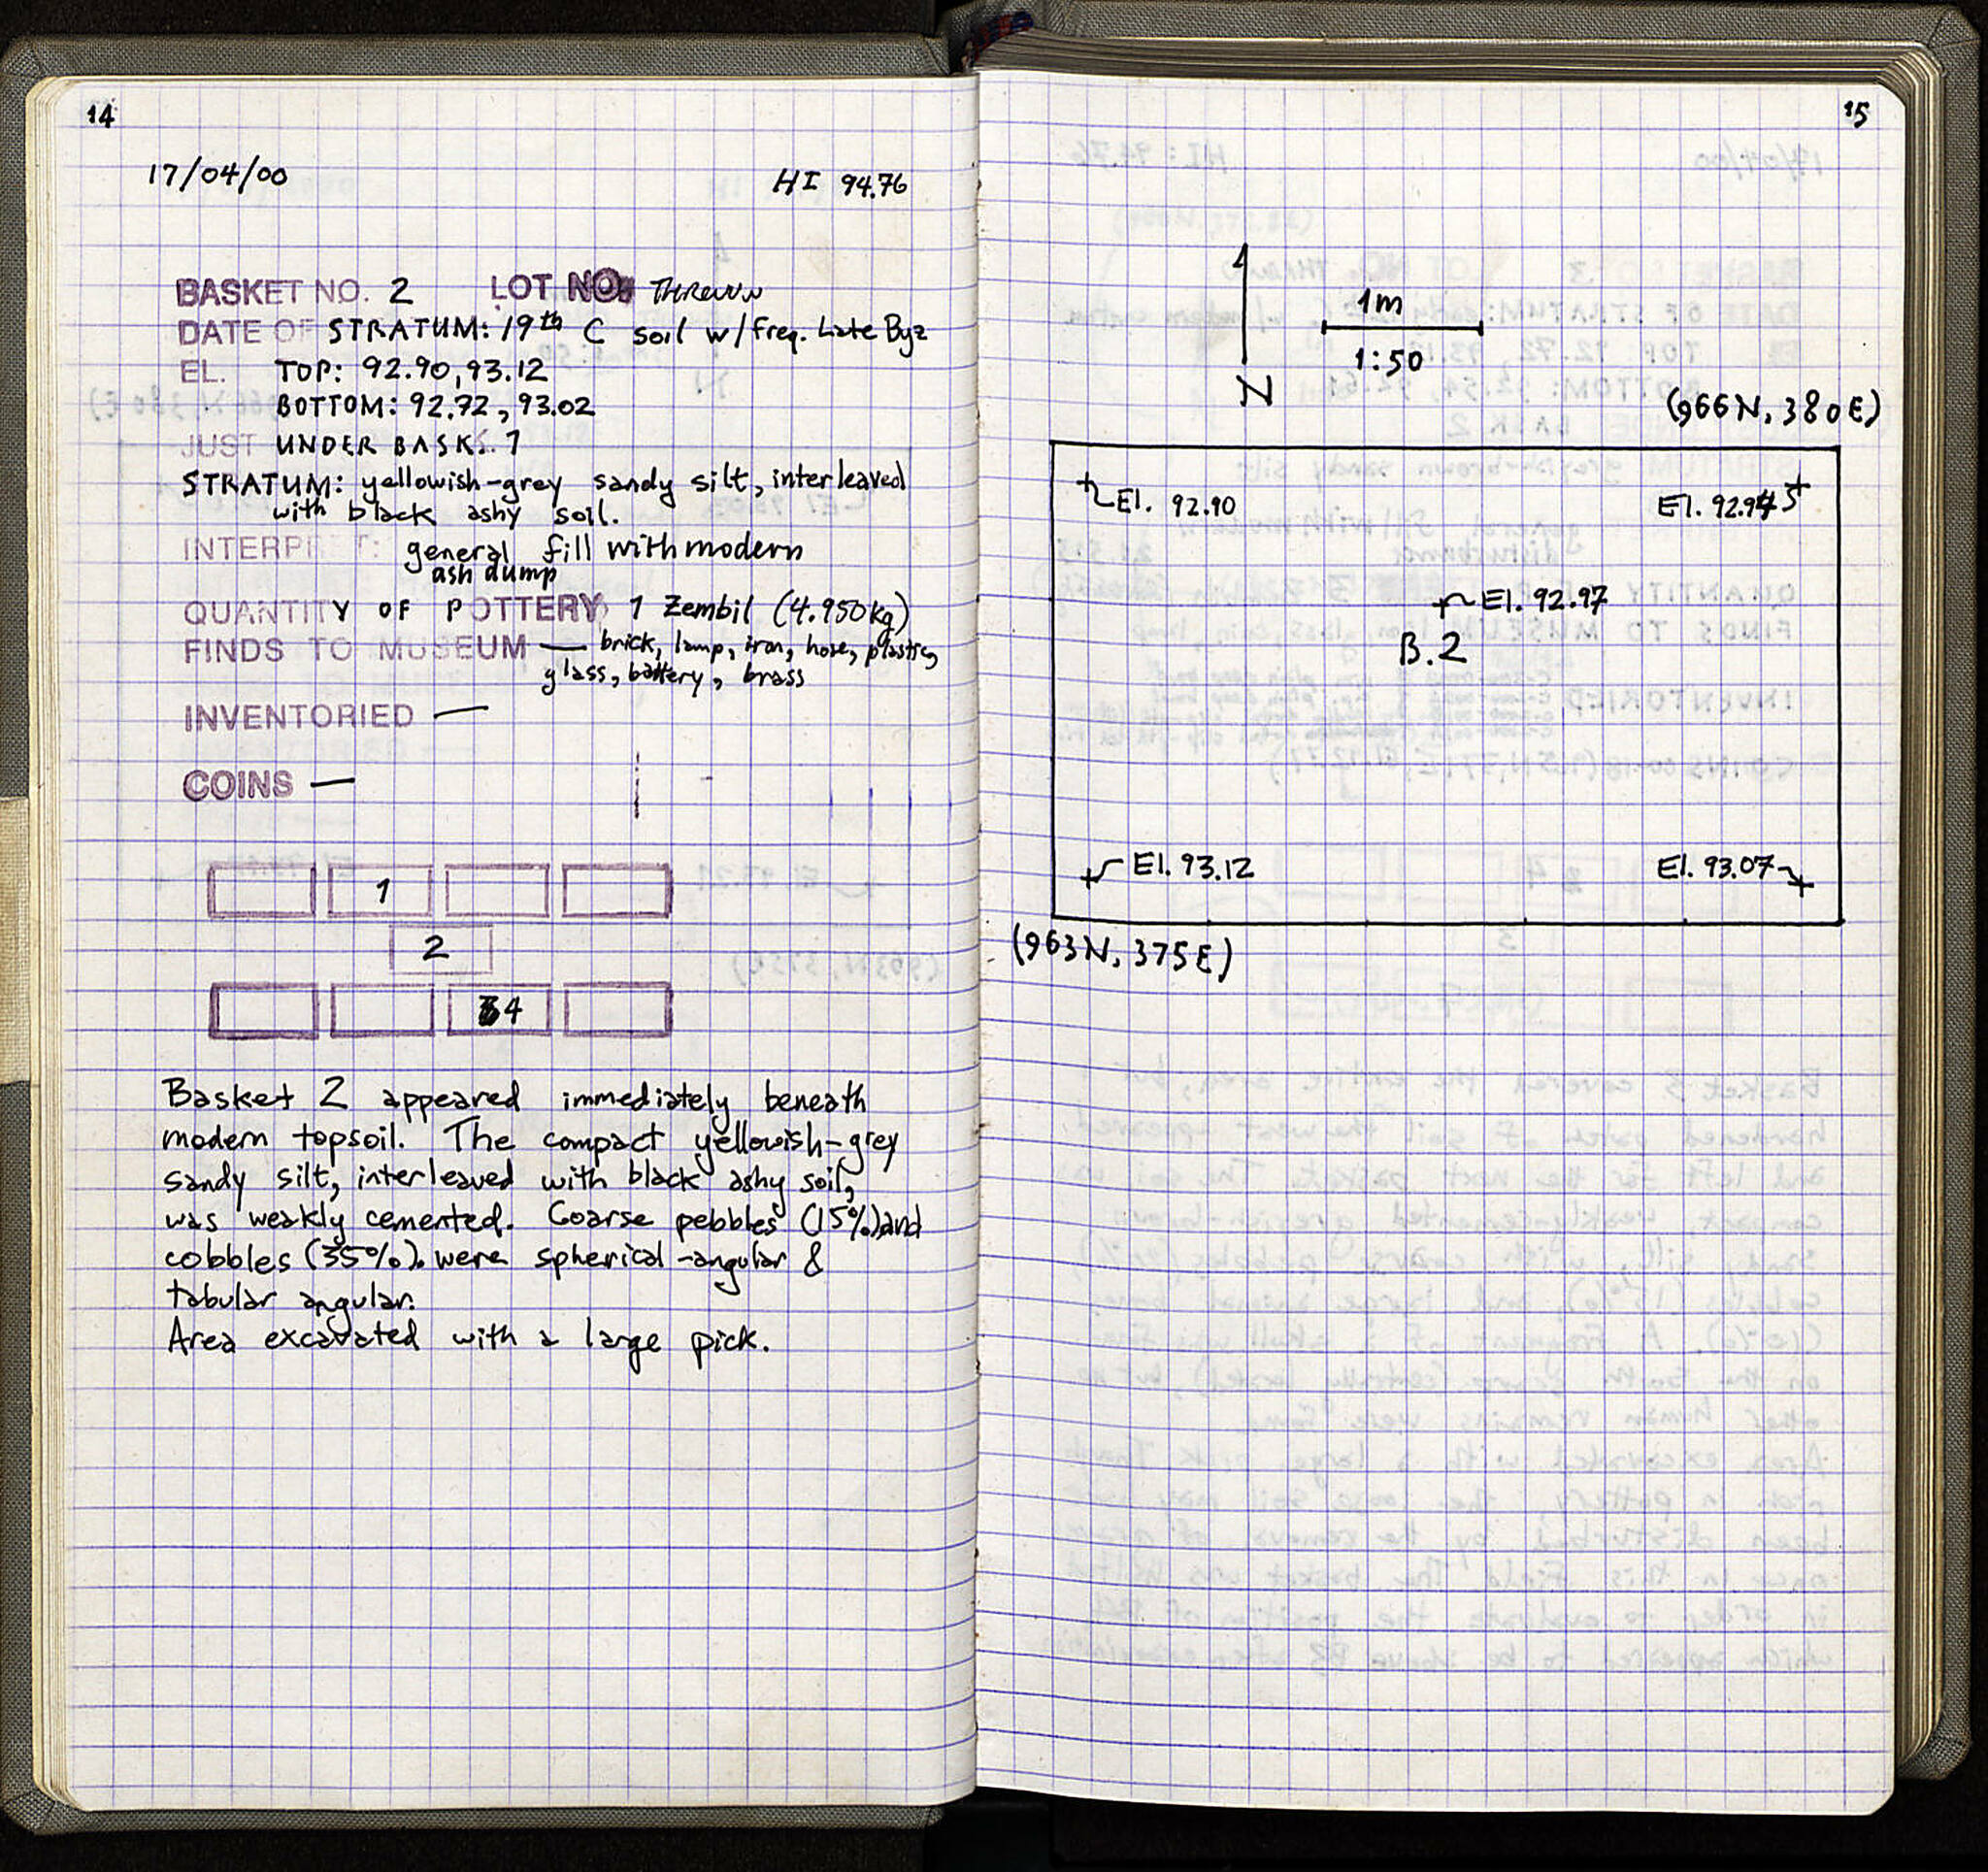 14
17/04/00 HI 94.76
BASKET NO. 2 LOT NO. THROWN
DATE OF STRATUM: 19th C soil w/ freq. Late Byz
EL. TOP: 92.90, 93.12
BOTTOM: 92.72, 93.02
JUST UNDER BASK. 1
STRATUM: yellowish-grey sandy silt, interleaved
with black ashy soil.
INTERPRET: general fill with modern
ash dump
QUANTITY OF POTTERY 1 Zembil (4.950kg)
FINDS TO MUSEUM — brick, lamp, iron, hose, plastic,
glass, battery, brass
INVENTORIED —
COINS —
1
2
4
Basket 2 appeared immediately beneath
modern topsoil. The compact yellowish-grey
sandy silt, interleaved with black ashy soil,
was weakly cemented. Coarse pebbles (15%) and
cobbles (35%). were spherical-angular &
tabular angular.
Area excavated with a large pick.
15
1m
1:50
N
(966N, 380E)
El. 92.90
El. 92.95
El. 92.97
B.2
El. 93.12
El. 93.07
(963N, 375E)